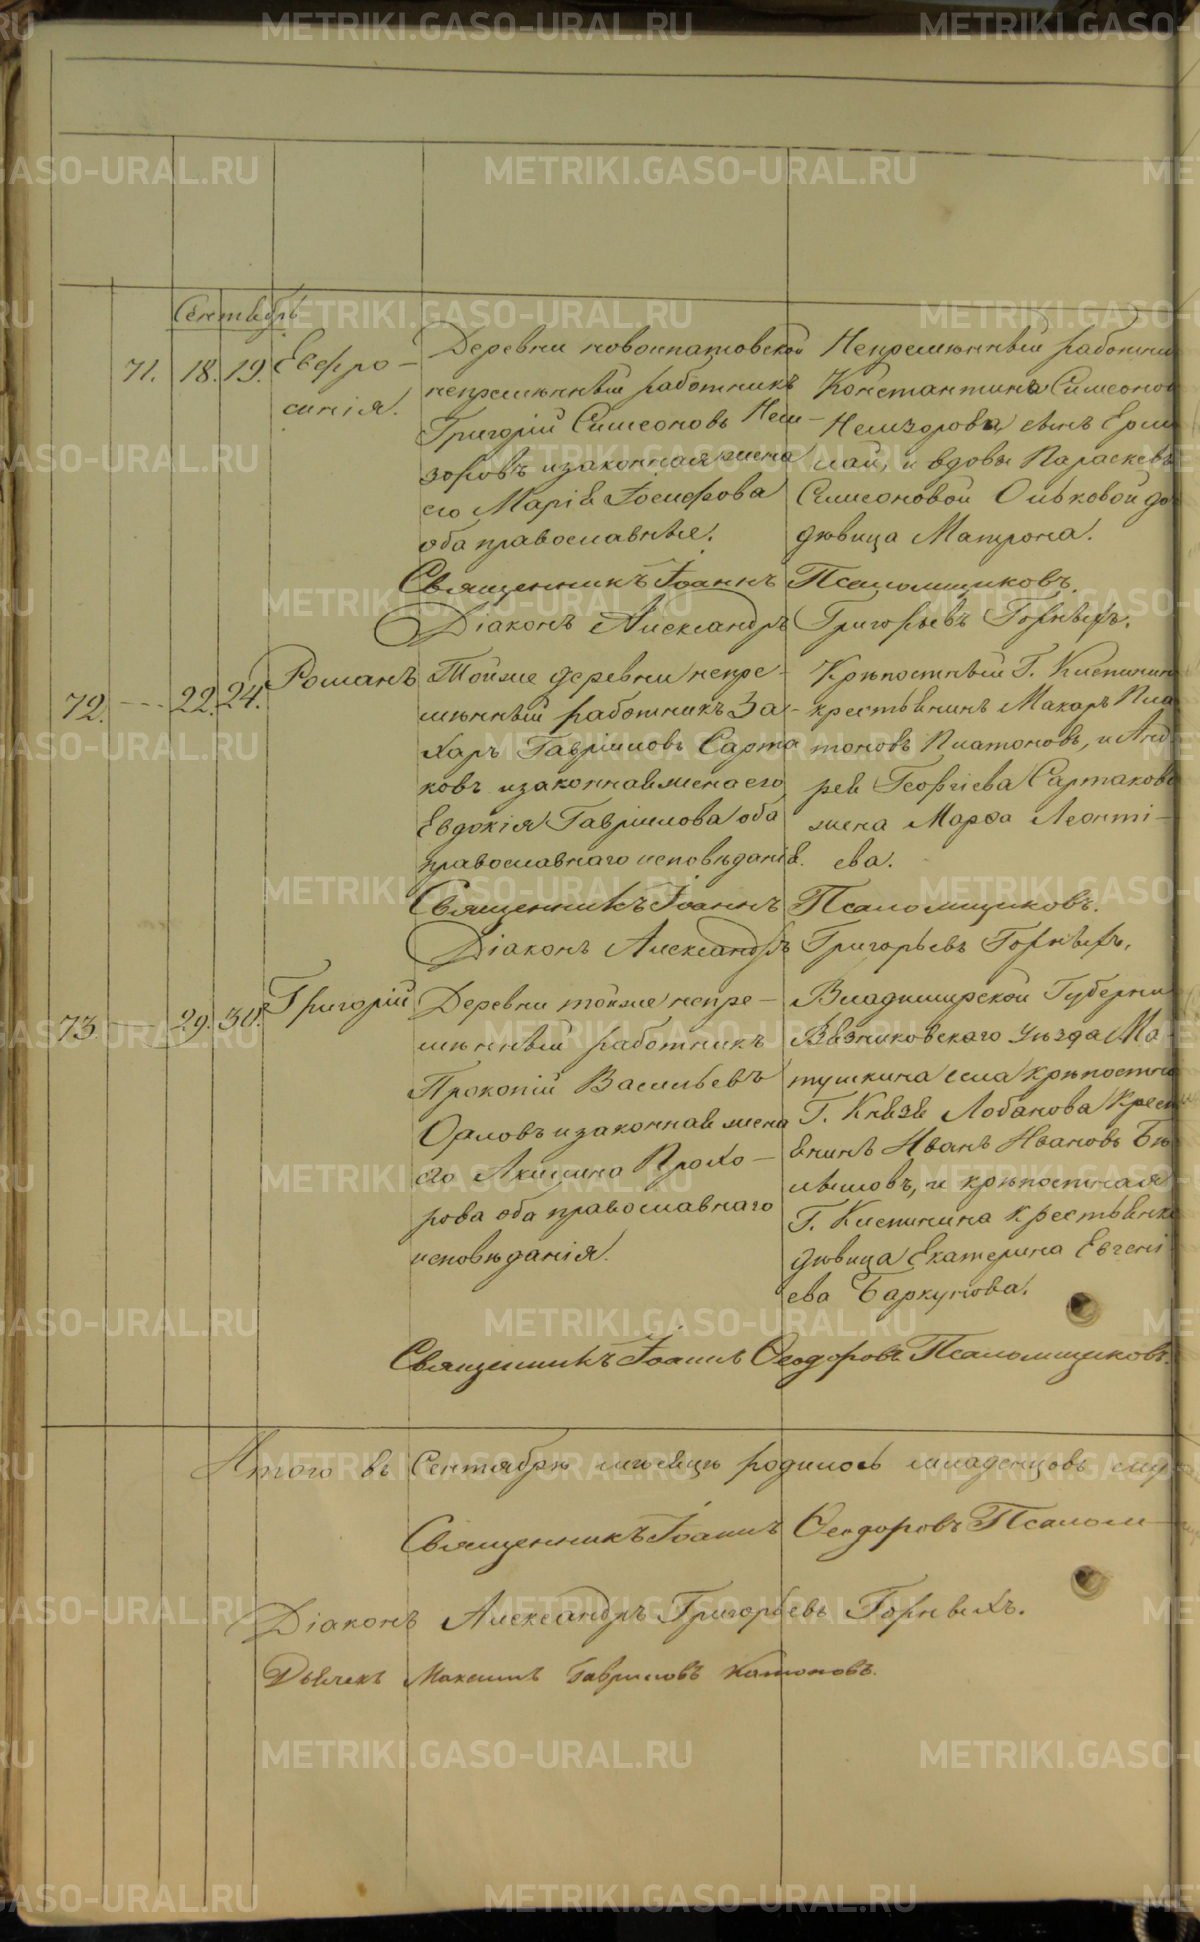 Сентябрь
71. 18. 19. Евфро-
синія.
Деревни новоипатовской
непремѣнный работникъ
Григорій Симеоновъ Нем-
зоровъ и законная жена
его Марія Іосифова
оба православныя.
Непремѣнный работни
Константина Симеонов
Немзорова сынъ Ерм
лай, и вдовы Параскевы
Симеоновой Ольковой до
дѣвица Матрона.
Священникъ Іоаннъ Псаломщиковъ.
Діаконъ Александръ Григорьевъ Горныхъ.
72. 22. 24. Романъ
Тойже деревни непре-
мѣнный работникъ За-
харъ Гавріиловъ Сарта
ковъ и законная жена его
Евдокія Гавріилова оба
православнаго исповѣданія.
Крѣпостный Г. Кистинин
крестьянинъ Макаръ Пла
тоновъ Платоновъ, и Анд
рея Георгіева Сартаково
жена Марѳа Леонті-
ева.
Священникъ Іоаннъ Псаломщиковъ.
Діаконъ Александръ Григорьевъ Горныхъ.
73. 29. 30. Григорій
Деревни тойже непре-
мѣнный работникъ
Прокопій Васильевъ
Орловъ и законная жена
его Акилина Прохо-
рова оба православнаго
исповѣданія.
Владимирской Губерни
Вязниковскаго уѣзда Ма-
тушкина села крѣпостны
Г. Князя Лобанова Крест
янинъ Иванъ Ивановъ Бѣ
лышовъ, и крѣпостная
Г. Кистинина крестьянка
дѣвица Екатерина Евгені
ева Баркунова.
Священникъ Іоаннъ Ѳеодоровъ Псаломщиковъ.
Итого въ Сентябрѣ мѣсяцѣ родилось младенцовъ му
Священникъ Іоаннъ Ѳеодоровъ Псалом
Діаконъ Александръ Григорьевъ Горныхъ.
Дьячекъ Максимъ Гавриловъ Катоновъ.
METRIKI.GASO-URAL.RU